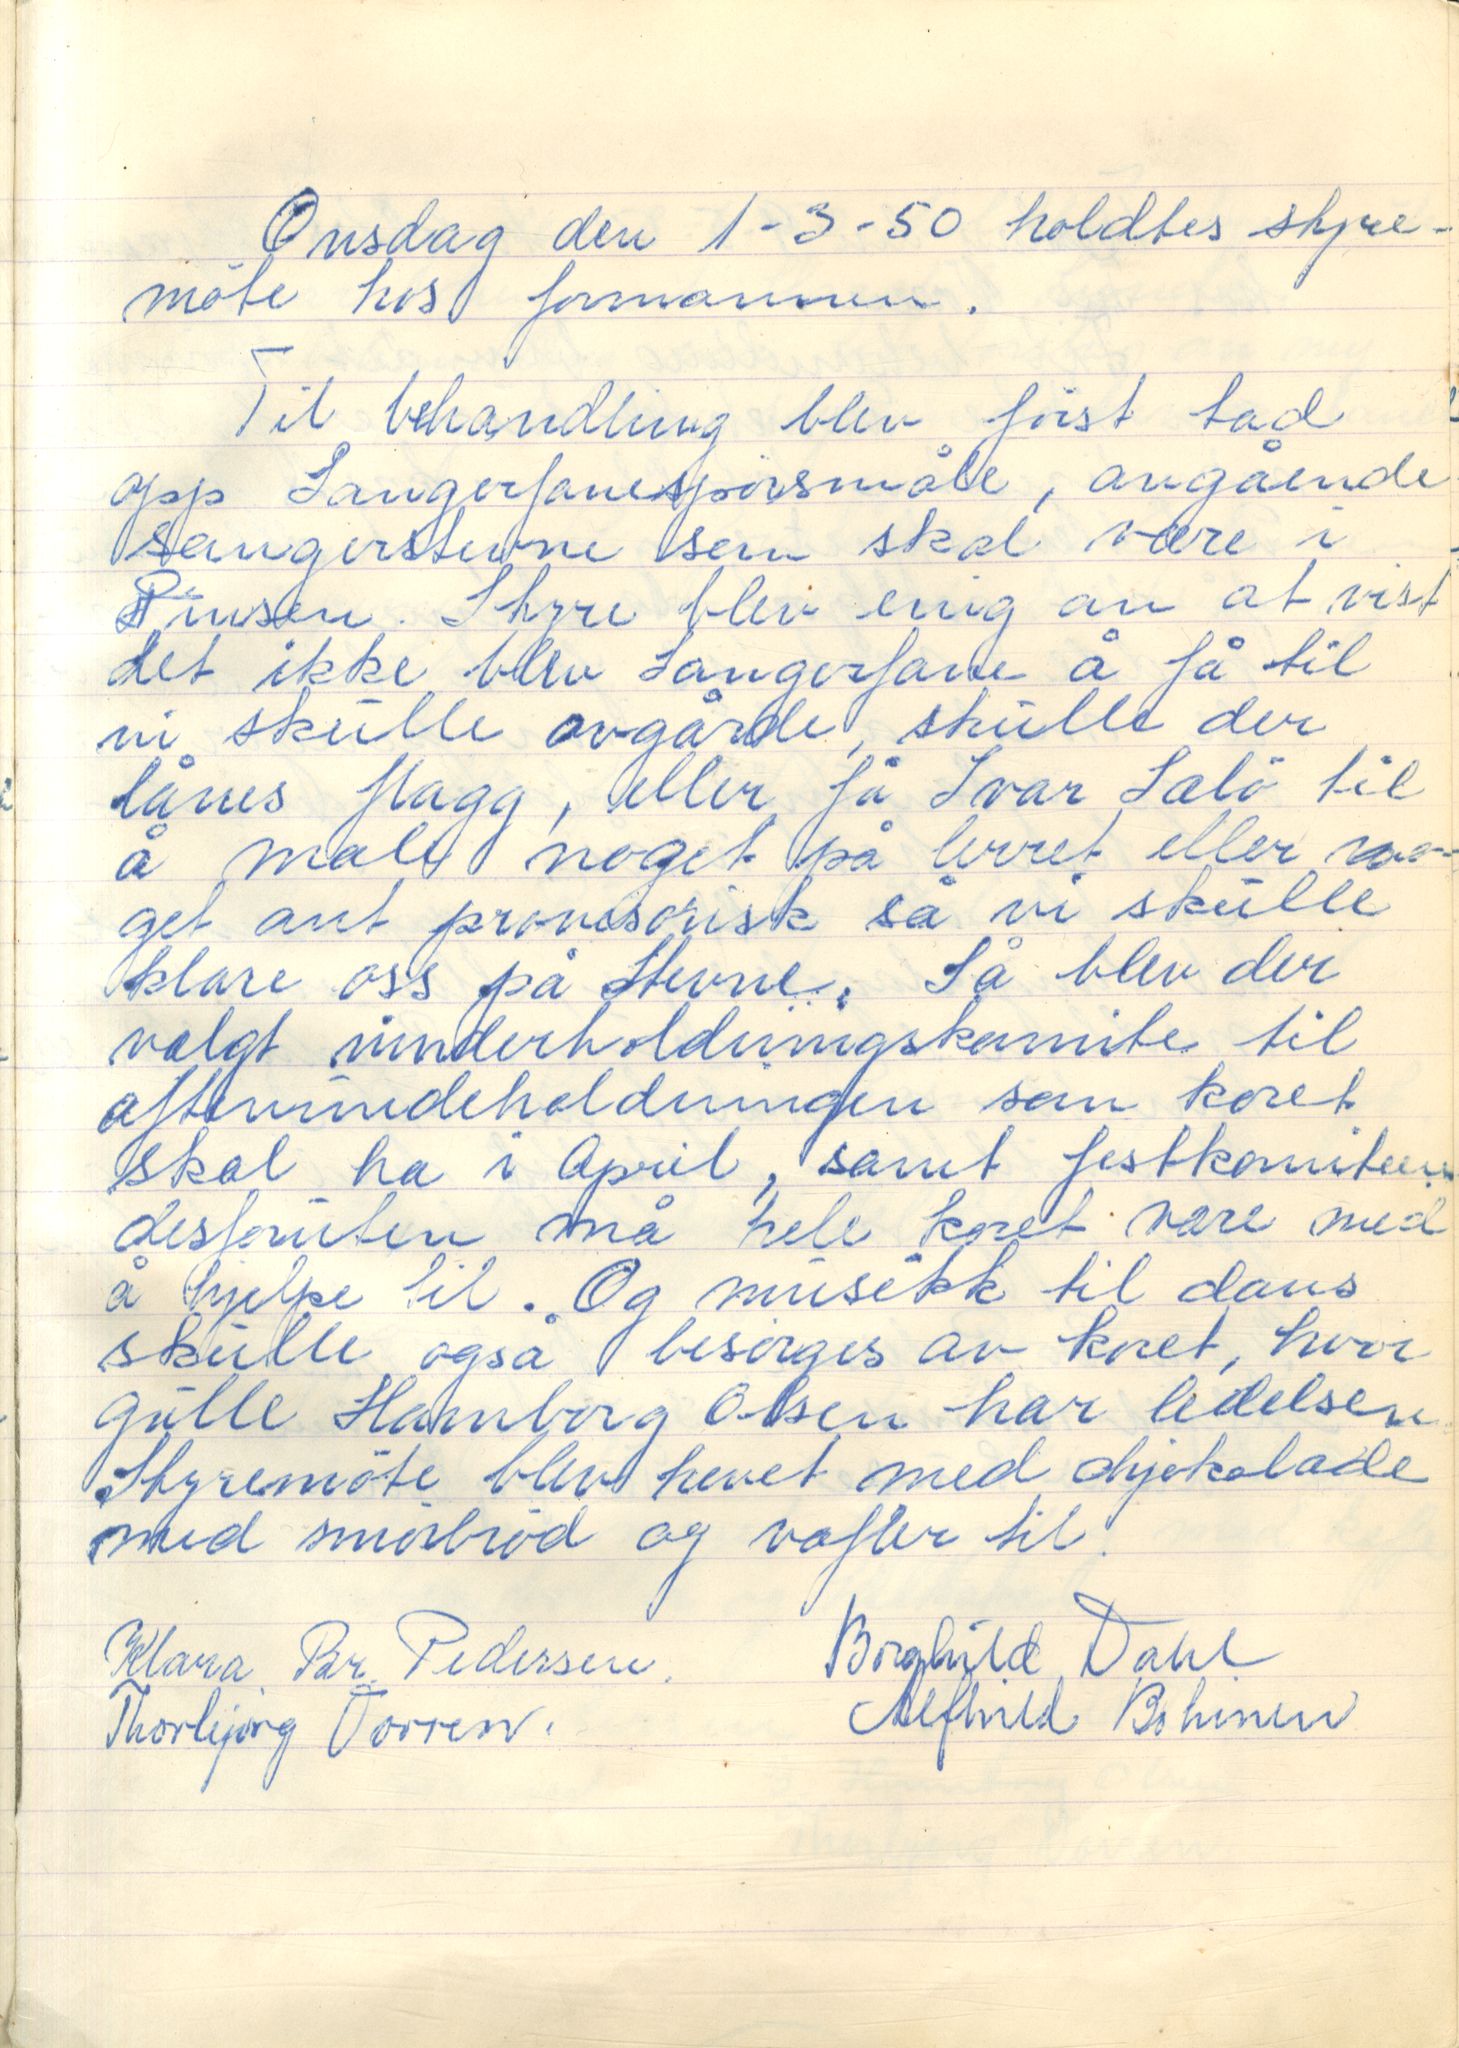 Onsdag den 1-3-50 holdtes styre-
möte hos formannen.
Til behandling blev först tad
opp Sangerfanespörsmåle, angående
sangerstevne som skal være i
Pinsen. Styre blev enig an at vist
det ikke blev Sangerfane å få til
vi skulle avgårde, skulle der
lånes flagg, eller få Ivar Salö til
å male noget på lerret eller no-
get ant provisorisk så vi skulle
klare oss på Stevne. Så blev der
valgt underholdningskomite til
aftenundeholdningen som koret
skal ha i April, samt festkomiteen
desforuten må hele koret være med
å hjelpe til. Og musikk til dans
skulle også besörges av koret, hvor
Gulle Hamborg Olsen har ledelsen.
Styremöte blev hevet med chjokolade
med smörbröd og vafler til.
Klara Br. Pedersen. Borghild Dahl
Thorbjörg Torren. Alfhild Bohinen